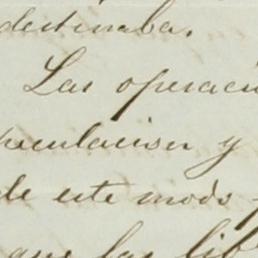 destinaba.
Las operacio
peculacion y
de este modo
que las lib